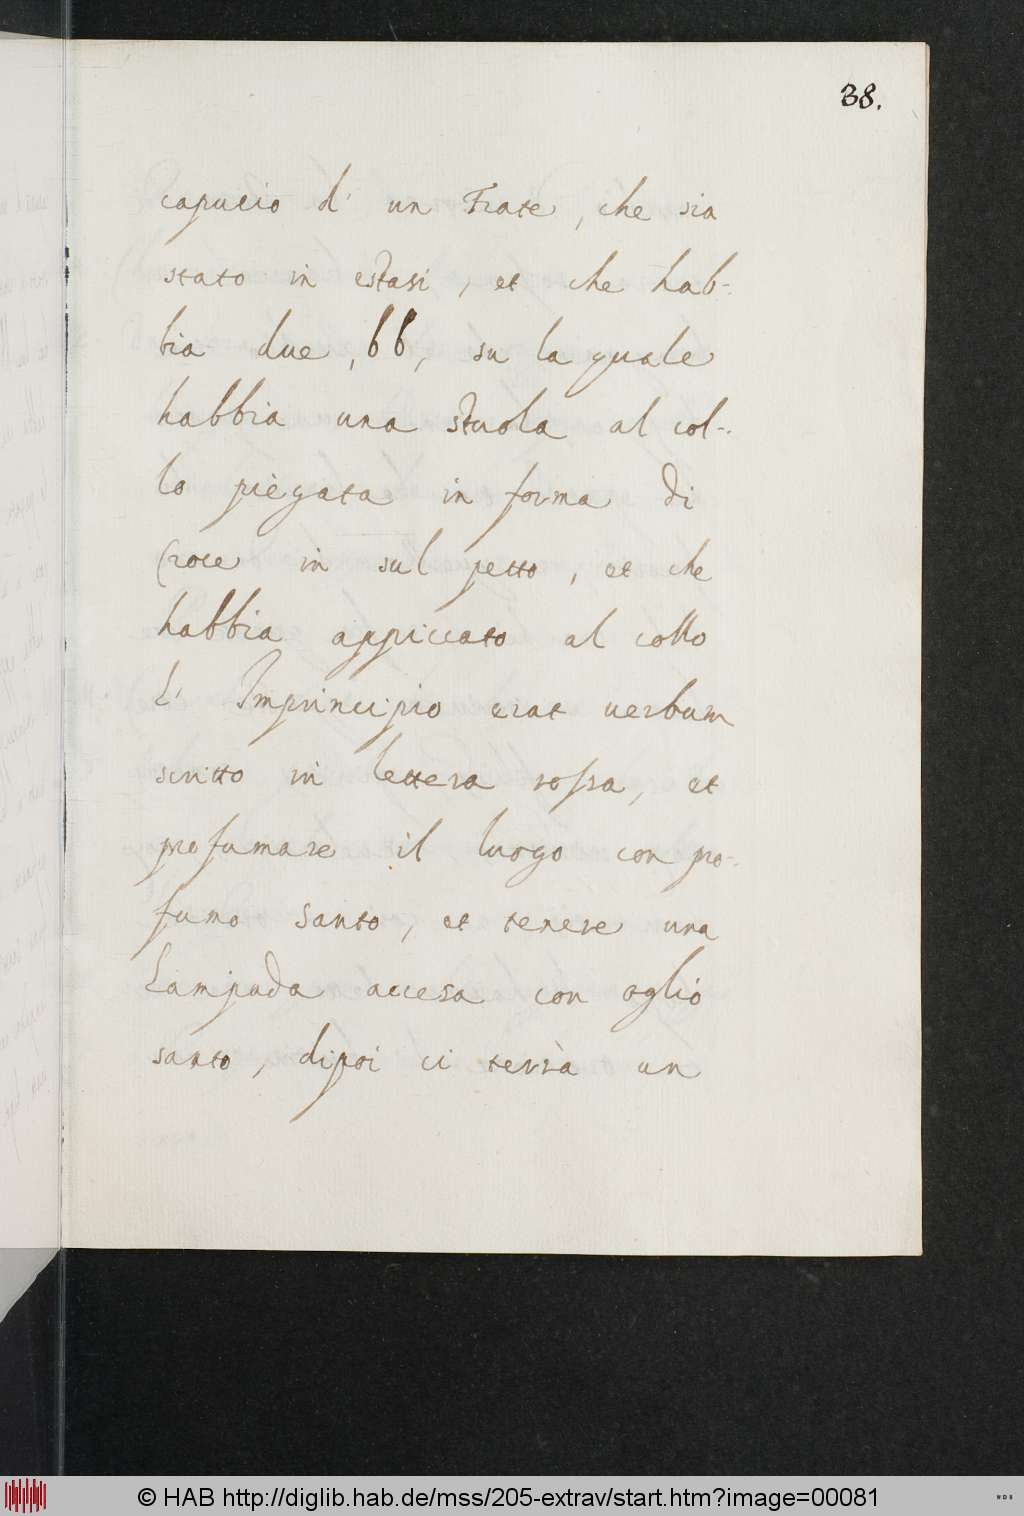 38.
capucio d' un Frate, che sia
stato in estasi, et che hab-
bia due, bb, su la quale
habbia una stuola al col-
lo piègata in forma di
Croce in sul petto, et che
habbia appiccato al collo
L' Imprincipio erat uerbum
scritto in lettera rossa, et
profumare il luogo con pro-
fumo santo, et tenere una
Lampada accesa con oglio
santo, dipoi ci terrà un
© HAB http://diglib.hab.de/mss/205-extrav/start.htm?image=00081